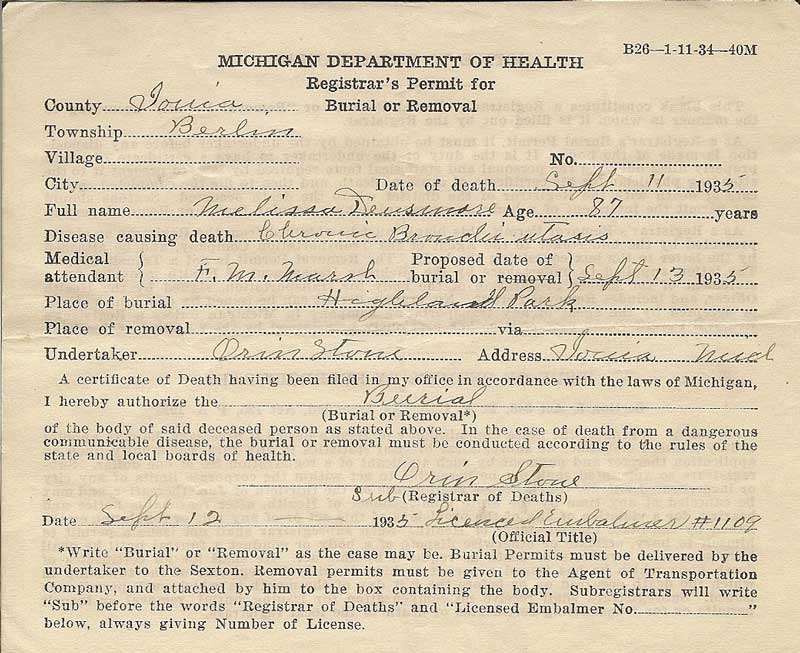 B26—1-11-34—40M
MICHIGAN DEPARTMENT OF HEALTH
Registrar's Permit for
Burial or Removal
County Ionia
Township Berlin
Village No.
City Date of death Sept 11 1935
Full name Melissa Densmore Age 87 years
Disease causing death Chronic Bronchi
Medical attendant F. M. Marsh Proposed date of burial or removal Sept 13 1935
Place of burial Highland Park
Place of removal via
Undertaker Orin Stone Address Ionia Mich
A certificate of Death having been filed in my office in accordance with the laws of Michigan,
I hereby authorize the Burial
(Burial or Removal*)
of the body of said deceased person as stated above. In the case of death from a dangerous
communicable disease, the burial or removal must be conducted according to the rules of the
state and local boards of health.
Orin Stone
Sub (Registrar of Deaths)
Date Sept 12 — 1935 Licenced Embalmer #1109
(Official Title)
*Write "Burial" or "Removal" as the case may be. Burial Permits must be delivered by the
undertaker to the Sexton. Removal permits must be given to the Agent of Transportation
Company, and attached by him to the box containing the body. Subregistrars will write
"Sub" before the words "Registrar of Deaths" and "Licensed Embalmer No. "
below, always giving Number of License.